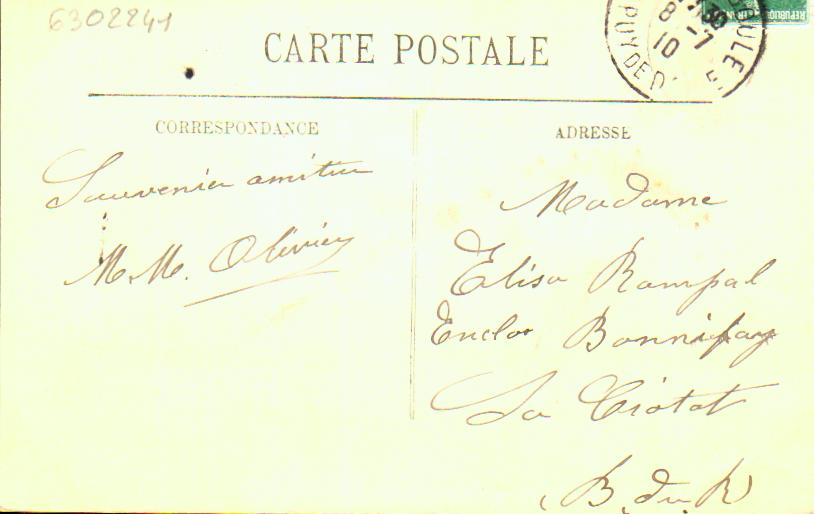 6302241
CARTE POSTALE
CORRESPONDANCE
Souvenir amitié
M. M. Olivier
ADRESSE
Madame
Elisa Rampal
Enclos Bonnifay
La Ciotat
(B. du R)
8 -7
10
PUY DE D